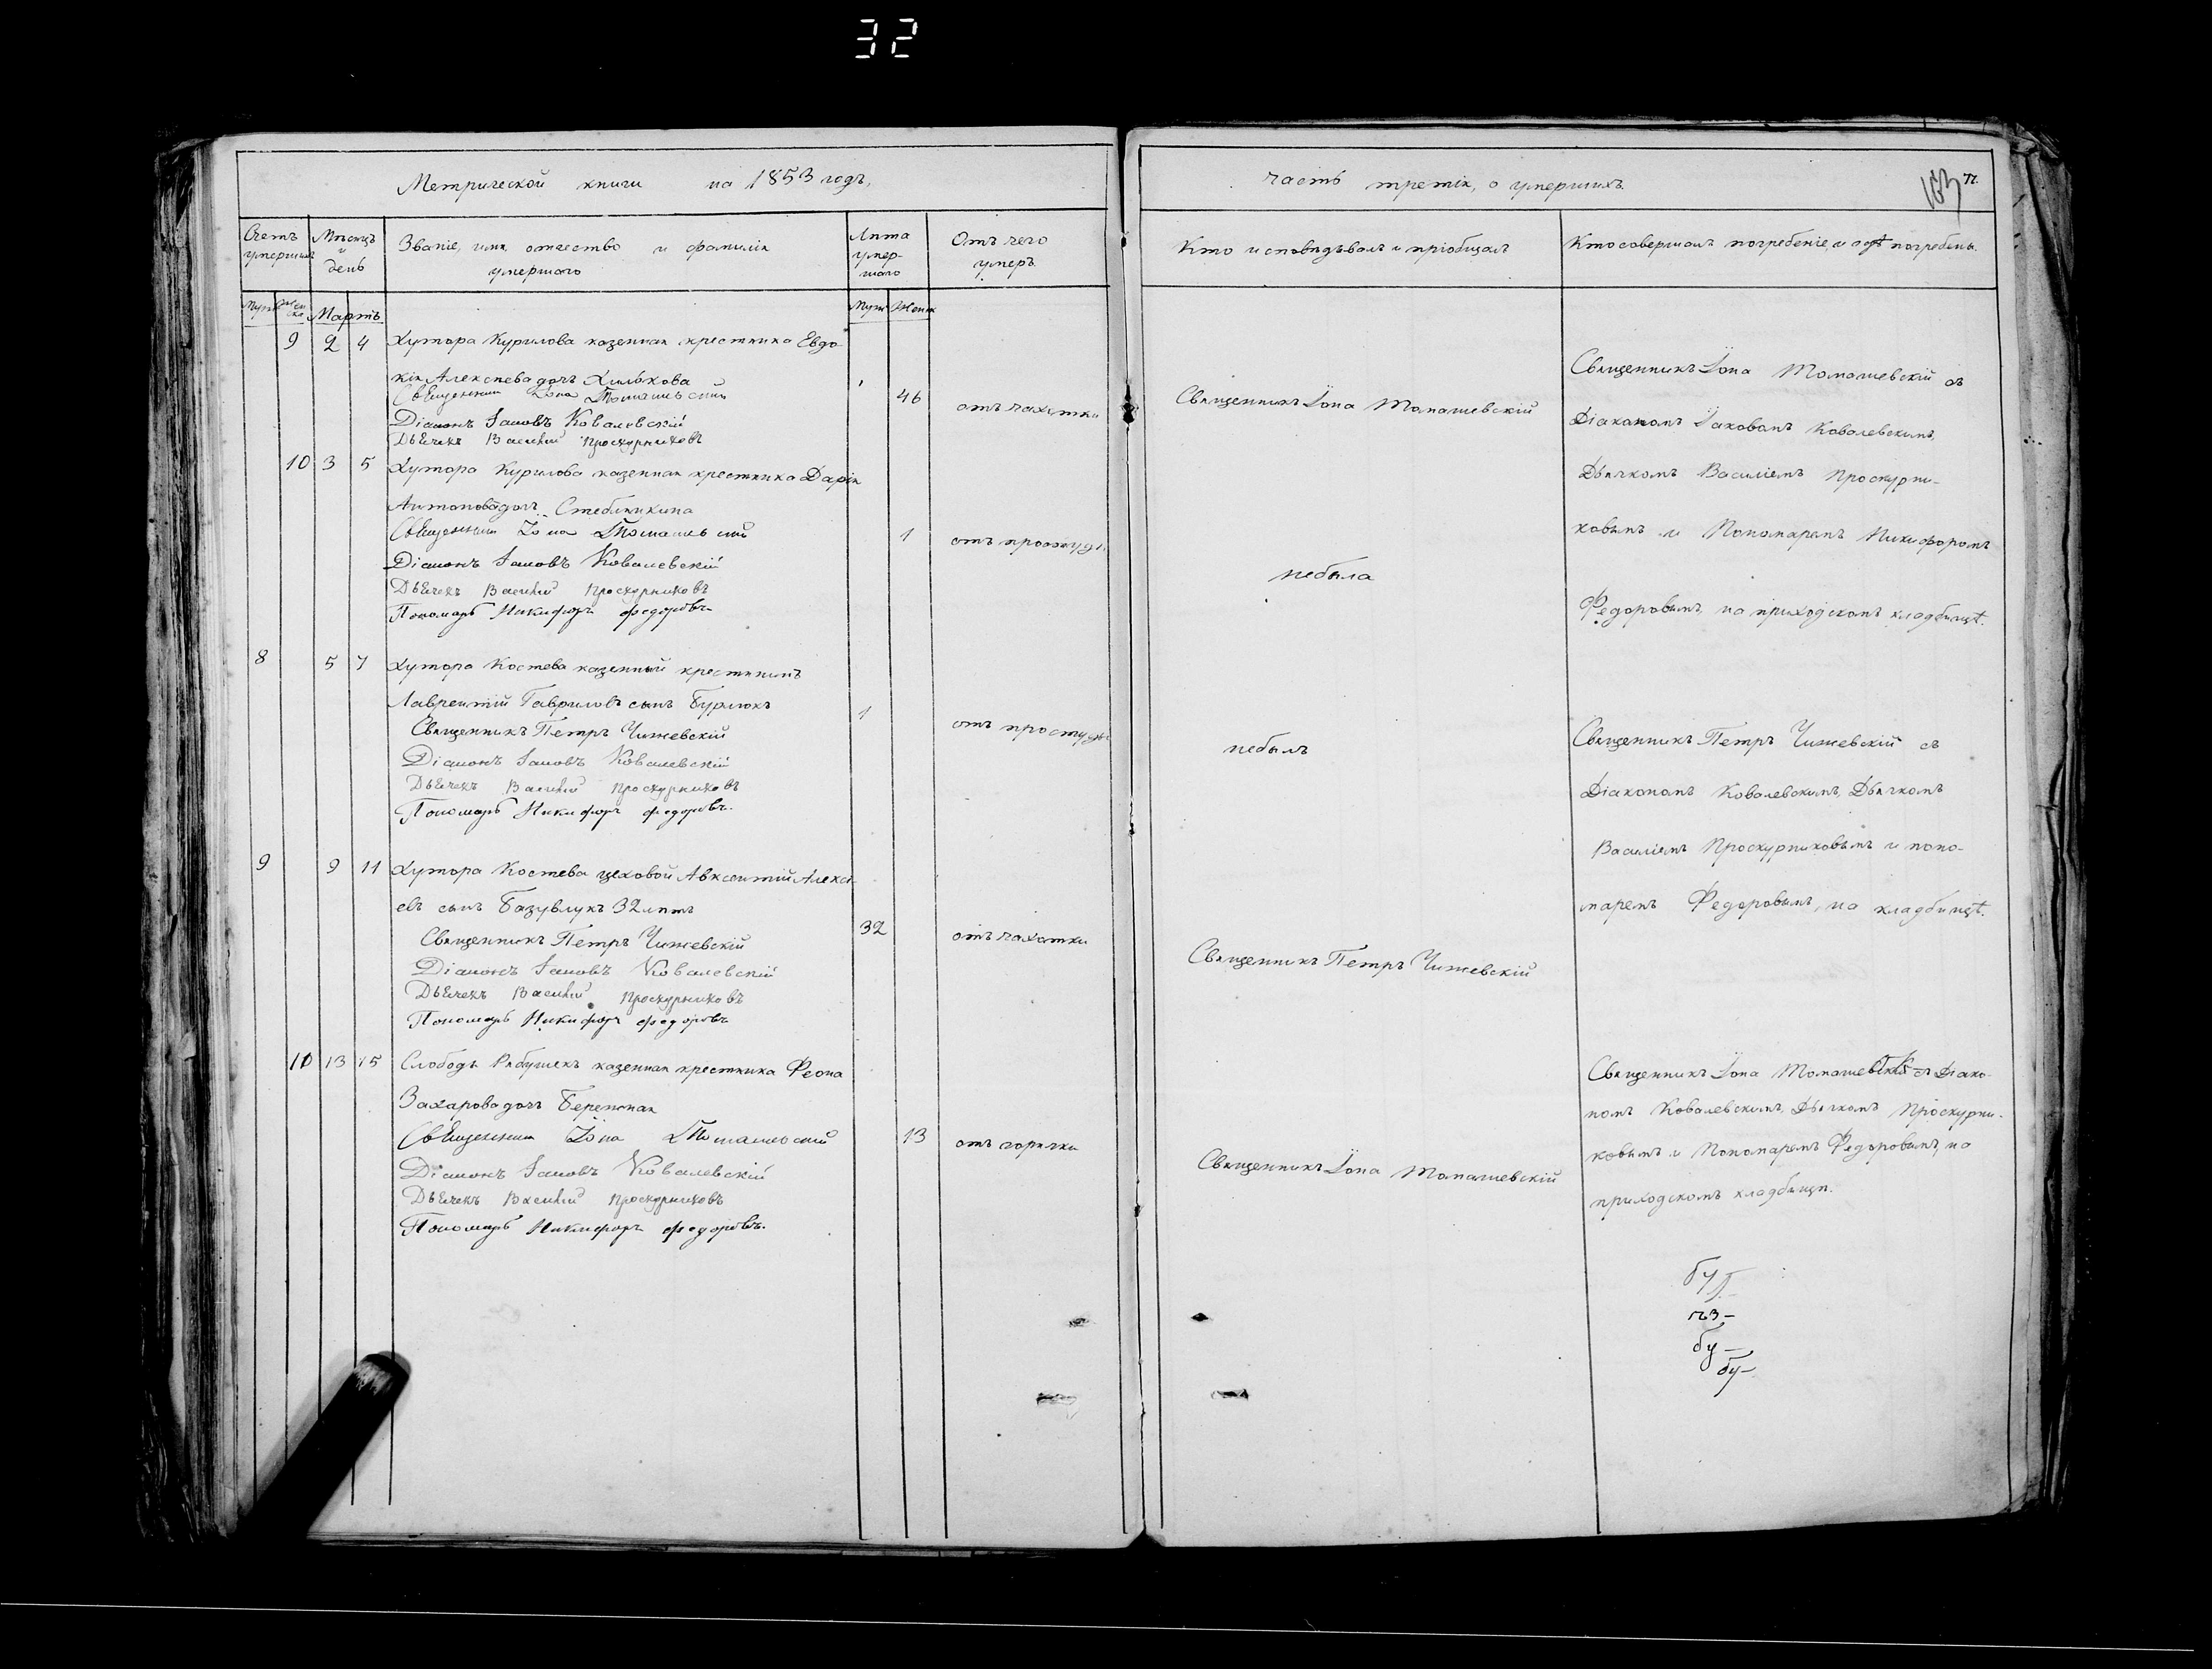 32
Метрической книги на 1853 годъ,
Счетъ умершихъ
Мѣсяцъ и день
Званіе, имя, отчество и фамилія умершаго
Лѣта умер-
шаго
Отъ чего умеръ.
Муж Женск
Мартъ
Муж Женск
9 2 4 Хутора Курилова казенная крестянка Евдо
кія Алексѣева дочь Хилькова
Священникъ Іона Томашевскій
46 отъ чахотки
Діаконъ Іаковъ Ковалевскій
Дьячекъ Василій Проскурниковъ
10 3 5 Хутора Курилова казенная крестянка Дарія
Антонова дочь Стеблянкина
Священникъ Іона Томашевскій
1 отъ простуды
Діаконъ Іаковъ Ковалевскій
Дьячекъ Василій Проскурниковъ
Пономарь Никифоръ Федоровъ
8 5 7 Хутора Костева казенный крестянинъ
Лаврентій Гавриловъ сынъ Бурлюкъ
1 отъ простуды
Священникъ Петръ Чижевскій
Діаконъ Іаковъ Ковалевскій
Дьячекъ Василій Проскурниковъ
Пономарь Никифоръ Федоровъ.
9 9 11 Хутора Костева цеховой Авксентій Алексѣ
евъ сынъ Базувлукъ 32 лѣтъ
32 отъ чахотки
Священникъ Петръ Чижевскій
Діаконъ Іаковъ Ковалевскій
Дьячекъ Василій Проскурниковъ
Пономарь Никифоръ Федоровъ
10 13 15 Слободы Рябушекъ казенная крестянка Феона
Захарова дочь
Священникъ Іона Томашевскій
13 отъ горячки
Діаконъ Іаковъ Ковалевскій
Дьячекъ Василій Проскурниковъ
Пономарь Никифоръ Федоровъ.
часть третія, о умершихъ.
163
77.
Кто исповѣдывалъ и пріобщалъ
Кто совершалъ погребеніе, и гдѣ погребены.
Священникъ Іона Томашевскій
Священникъ Іона Томашевскій съ
Діакономъ Іаковомъ Ковалевскимъ,
Дьячкомъ Василіемъ Проскурни-
ковымъ и Пономаремъ Никифоромъ
небыла
Федоровымъ, на приходскомъ кладбищѣ.
небылъ
Священникъ Петръ Чижевскій съ
Діакономъ Ковалевскимъ, Дьячкомъ
Василіемъ Проскурниковымъ и поно-
маремъ Федоровымъ, на кладбищѣ.
Священникъ Петръ Чижевскій
Священникъ Іона Томашевскій
Священникъ Іона Томашевскій съ Діако-
номъ Ковалевскимъ, Дьячкомъ Проскурни-
ковымъ и Пономаремъ Федоровымъ, на
приходскомъ кладбищѣ.